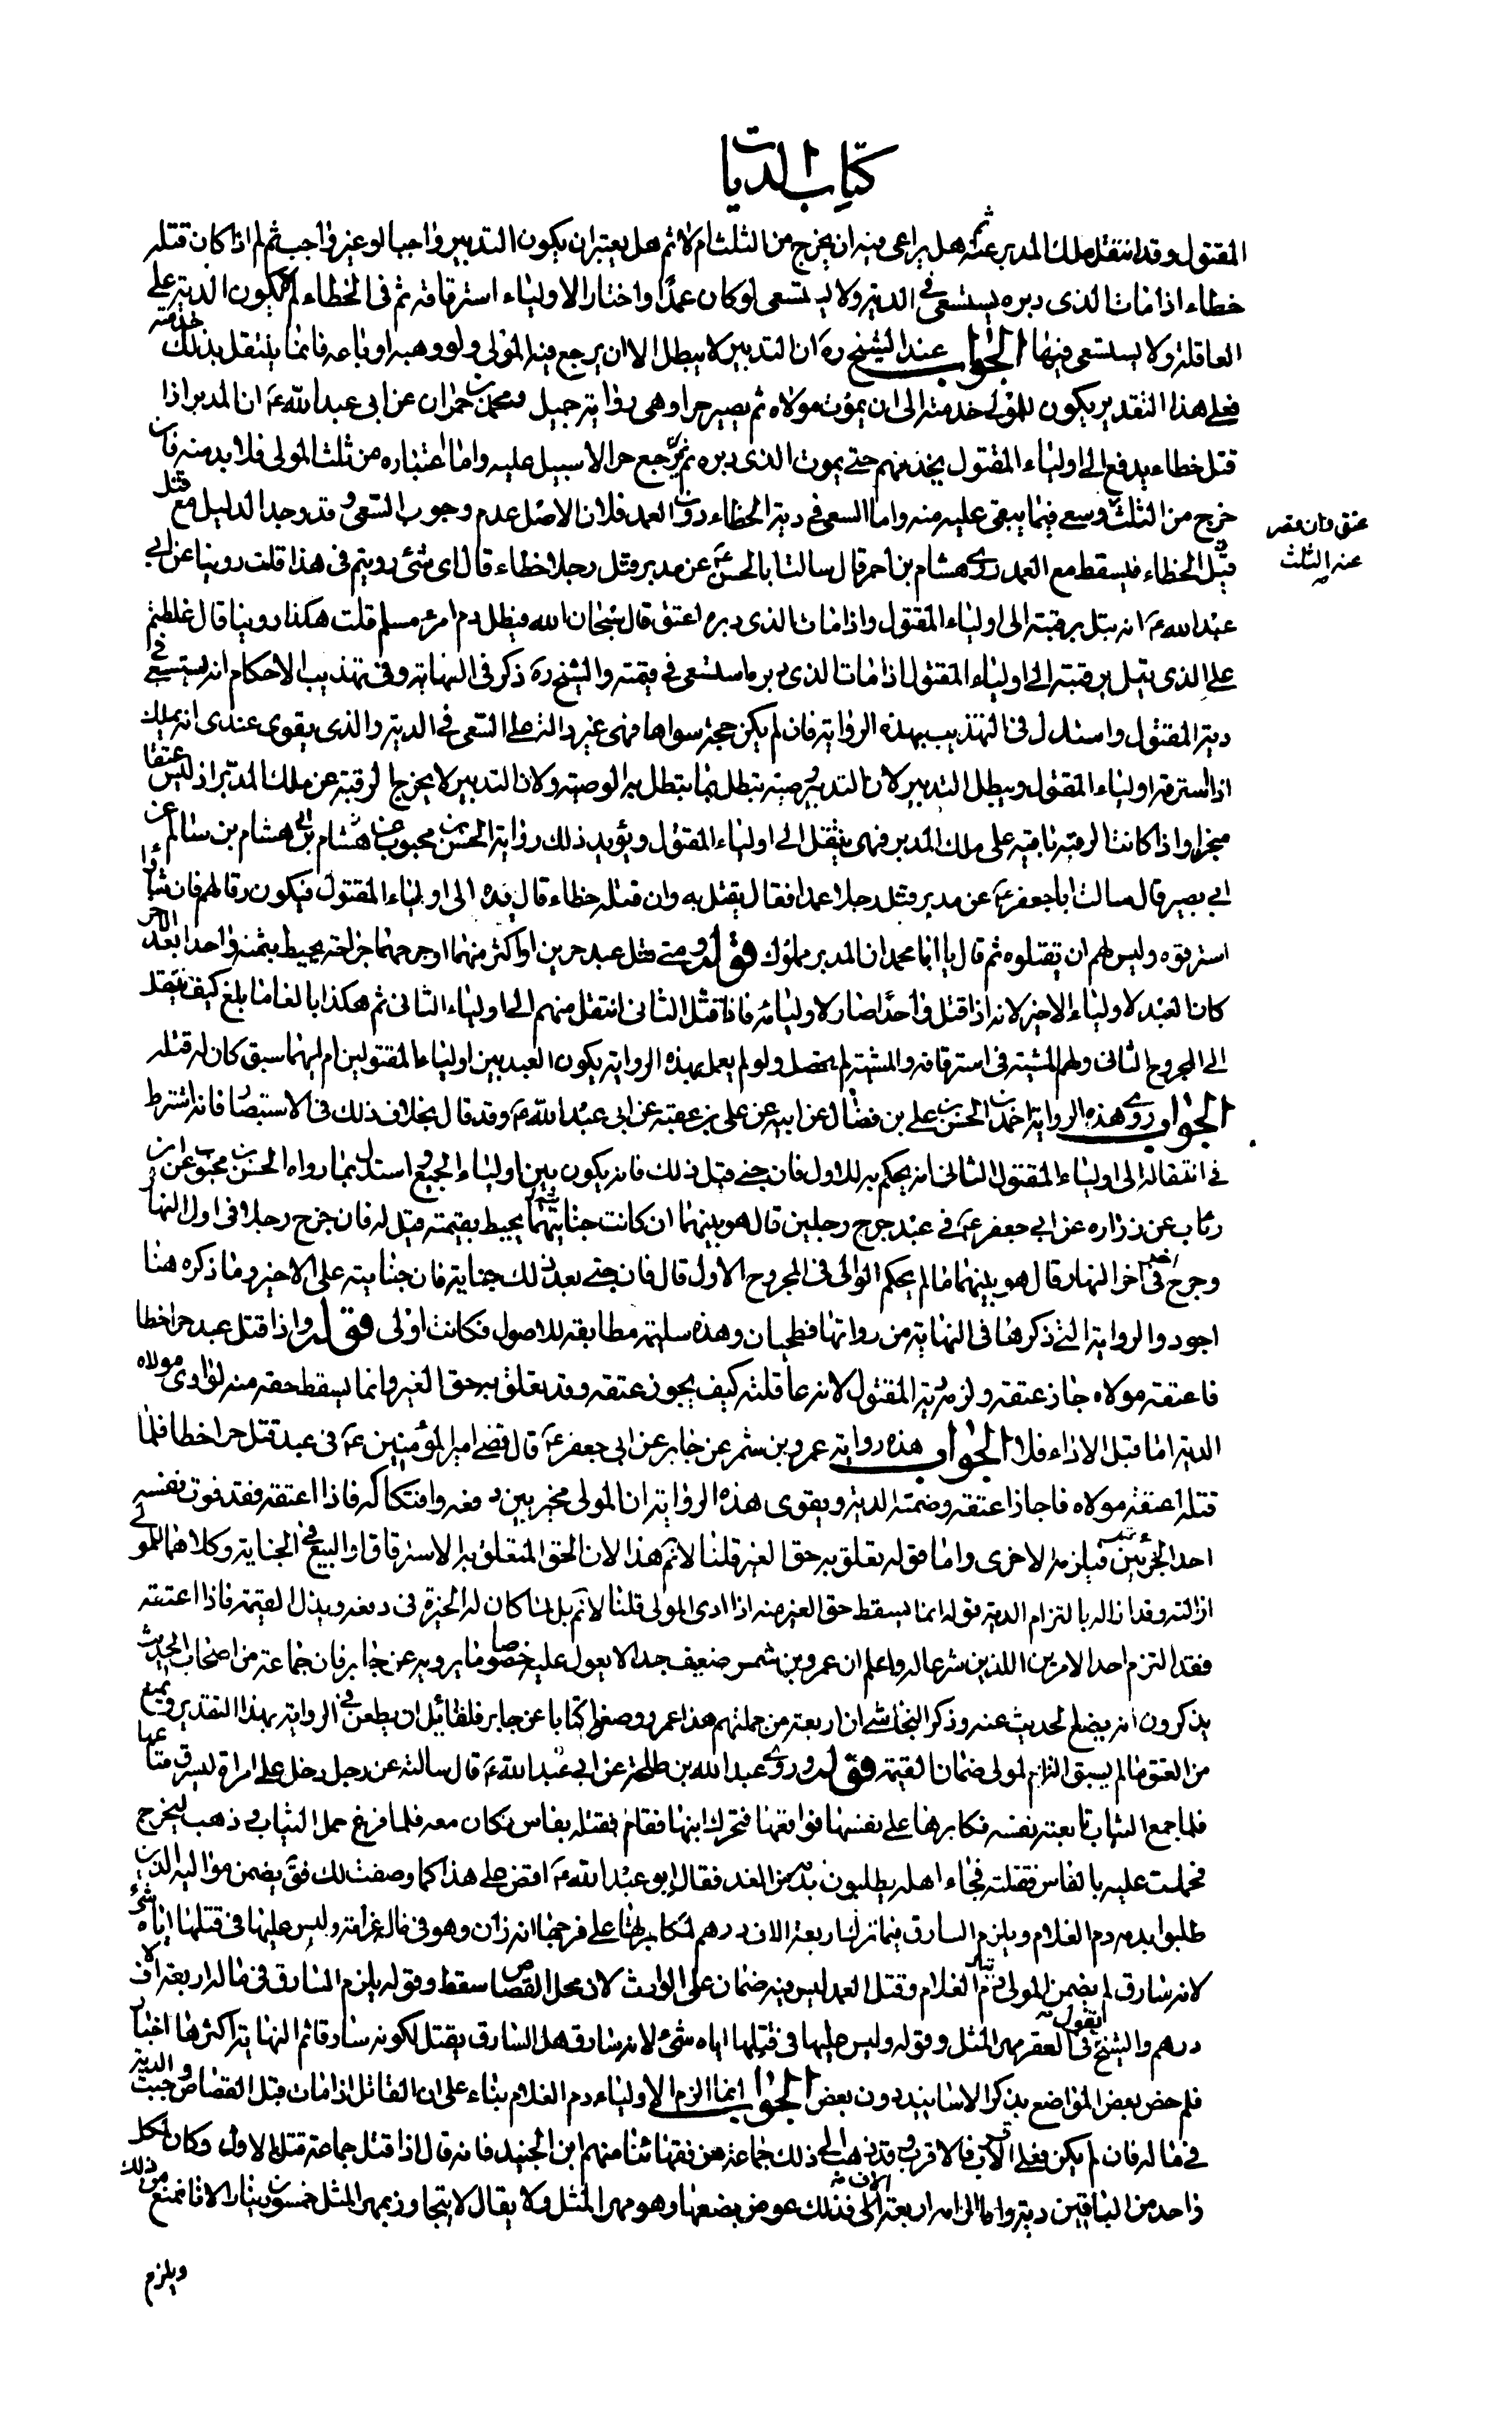 كتاب الديات
المقتول وقد انتقل ملك المدبر عنه ثم هل يراعى فيه ان يخرج من الثلث ام لا ثم هل يعتبر ان يكون التدبير واجبا او غير واجب ثم لم اذا كان قتله
خطاء اذا مات الذى دبره يستسعى فى الدية ولا يستسعى لو كان عمدا واختار الاولياء استرقاقه ثم فى الخطاء لم لا يكون الدية على
العاقلة ولا يستسعى فيها الجواب عند الشيخ ره ان التدبير لا يبطل الا ان يرجع فيه المولى ولو وهبه او باعه فانما ينتقل بذلك خدمته
فعلى هذا التقدير يكون للمولى خدمته الى ان يموت مولاه ثم يصير حرا وهى رواية جميل ومحمد بن حمران عن ابى عبد الله ع ان المدبر اذا
قتل خطاء يدفع الى اولياء المقتول يخدمهم حتى يموت الذى دبره ثم يرجع حرا لا سبيل عليه واما اعتباره من ثلث المولى فلا بد منه فان
خرج من الثلث وسعى فيما يبقى عليه منه واما السعى فى دية الخطاء دون العمد فلان الاصل عدم وجوب السعى وقد وجد الدليل مع قتل
عتق وان قصر
عنه الثلث
قتل الخطاء فيسقط مع العمد روى هشام بن احمر قال سالت ابا الحسن ع عن مدبر قتل رجلا خطاء قال اى شئ رويتم فى هذا قلت روينا عن ابى
عبد الله ع انه يتل برقبته الى اولياء المقتول واذا مات الذى دبره اعتق قال سبحان الله فيطل دم امرء مسلم قلت هكذا روينا قال غلطتم
على الذى يتل برقبته الى اولياء المقتول اذا مات الذى دبره استسعى فى قيمته والشيخ ره ذكر فى النهاية وفى تهذيب الاحكام انه يستسعى فى
دية المقتول واستدل فى التهذيب بهذه الرواية فان لم يكن حجة سواها فهى غير دالة على السعى فى الدية والذى يقوى عندى انه يملك
اذا استرقه اولياء المقتول ويبطل التدبير لان التدبير وصية يبطل بما يبطل به الوصية ولان التدبير لا يخرج الرقبة عن ملك المدبر اذ ليس عتقا
منجزا واذا كانت الرقبة باقية على ملك المدبر فهى ينتقل الى اولياء المقتول ويؤيد ذلك رواية الحسن بن محبوب عن هشام بن سالم عن
ابى بصير قال سالت ابا جعفر ع عن مدبر قتل رجلا عمدا فقال يقتل به وان قتله خطاء قال يدفع الى اولياء المقتول فيكون رقا لهم فان شاؤا
استرقوه وليس لهم ان يقتلوه ثم قال يا ابا محمد ان المدبر مملوك قوله ومتى قتل عبد حرين او اكثر منهما او جرحهما جراحة يحيط بثمنه واحدا بعد الاخر
كان العبد لاولياء الاخير لانه اذا قتل واحدا صار لاوليائه فاذا قتل الثانى انتقل منهم الى اولياء الثانى ثم هكذا بالغا ما بلغ كيف ينتقل
الى المجروح الثانى ولهم المشية فى استرقاقه والمشية لم يحصل ولو لم يعمل بهذه الرواية يكون العبد بين اولياء المقتولين ام ايهما سبق كان له قتله
الجواب روى هذه الرواية احمد بن الحسن بن على بن فضال عن ابيه عن على بن عقبة عن ابى عبد الله ع وقد قال بخلاف ذلك فى الاستبصار فانه اشترط
فى انتقاله الى اولياء المقتول الثانى انه يحكم به للاول فان جنى قبل ذلك فانه يكون بين اولياء الجميع واستدل بما رواه الحسن بن محبوب عن ابن
رئاب عن زراره عن ابى جعفر ع فى عبد جرح رجلين قال هو بينهما ان كانت جنايته يحيط بقيمته قيل له فان جرح رجلا فى اول النهار
وجرح اخر فى اخر النهار قال هو بينهما ما لم يحكم الوالى فى المجروح الاول قال فان جنى بعد ذلك جناية فان جنايته على الاخير وما ذكره هنا
اجود والرواية التى ذكرها فى النهاية من رواتها فطحيان وهذه سليمة مطابقة للاصول فكانت اولى قوله واذا قتل عبد حرا خطا
فاعتقه مولاه جاز عتقه ولزمه دية المقتول لانه عاقلته كيف يجوز عتقه وقد تعلق به حق الغير وانما يسقط حقه منه لو ادى مولاه
الدية اما قبل الاداء فلا الجواب هذه رواية عمرو بن شمر عن جابر عن ابى جعفر ع قال قضى امير المؤمنين ع فى عبد قتل حرا خطا فلما
قتله اعتقه مولاه فاجاز عتقه وضمنه الدية ويقوى هذه الرواية ان المولى مخير بين دفعه وافتكاكه فاذا اعتقه فقد فوت نفسه
احد الجزئين فيلزمه الاخرى واما قوله تعلق به حق الغير قلنا لا نم هذا لان الحق المتعلق به الاسترقاق او البيع فى الجناية وكلاهما للمولى
ازالته وقد ازاله بالتزام الدية قوله انما يسقط حق الغير منه اذا ادى المولى قلنا لا نم بل لما كان له الخيرة فى دفعه وبذل القيمة فاذا اعتقه
فقد التزم احد الامرين اللذين شرعا له واعلم ان عمرو بن شمر ضعيف جدا لا يعول عليه خصوصا ما يرويه عن جابر فان جماعة من اصحاب الحديث
يذكرون انه يضع الحديث عنه وذكر النجاشى ان اربعة من جملتهم هذا عمرو وضعوا كتابا عن جابر فلقائل ان يطعن فى الرواية بهذا التقدير ويمنع
من العتق ما لم يسبق التزام المولى ضمان القيمة قوله وروى عبد الله بن طلحة عن ابى عبد الله ع قال سالته عن رجل دخل على امراة ليسرق متاعها
فلما جمع الثياب تابعته نفسه فكابرها على نفسها فواقعها فتحرك ابنها فقام فقتله بفاس كان معه فلما فرغ حمل الثياب وذهب ليخرج
فحملت عليه بالفاس فقتلته فجاء اهله يطلبون بدمه من الغد فقال ابو عبد الله ع اقض على هذا كما وصفت لك فق يضمن مواليه الذين
طلبوا بدمه دم الغلام ويلزم السارق فيما ترك اربعة الاف درهم لمكابرتها على فرجها انه زان وهو فى ماله غرامة وليس عليها فى قتلها اياه شئ
لانه سارق لم يضمن المولى دم الغلام وقتل العمد ليس فيه ضمان على الوارث لان محل القصاص سقط وقوله يلزم السارق فى ماله اربعة الاف
درهم والشيخ يقول فى العقر مهر المثل وقوله وليس عليها فى قتلها اياه شئ لانه سارق هل السارق يقتل لكونه سارقا ثم النهاية اكثرها اخبار
فلم خص بعض المواضع بذكر الاسانيد دون بعض الجواب انما الزم الاولياء دم الغلام بناء على ان القاتل اذا مات قبل القصاص وجبت الدية
فى ماله فان لم يكن فعلى الاقرب فالاقرب وقد ذهب الى ذلك جماعة من فقهائنا منهم ابن الجنيد فانه قال اذا قتل جماعة قتل الاول وكان لكل
واحد من الباقين دية واما الزامه اربعة الاف فذلك عوض بضعها وهو مهر المثل ولا يقال لا يتجاوز بمهر المثل خمسون دينارا لانا نمنع من ذلك
ويلزم